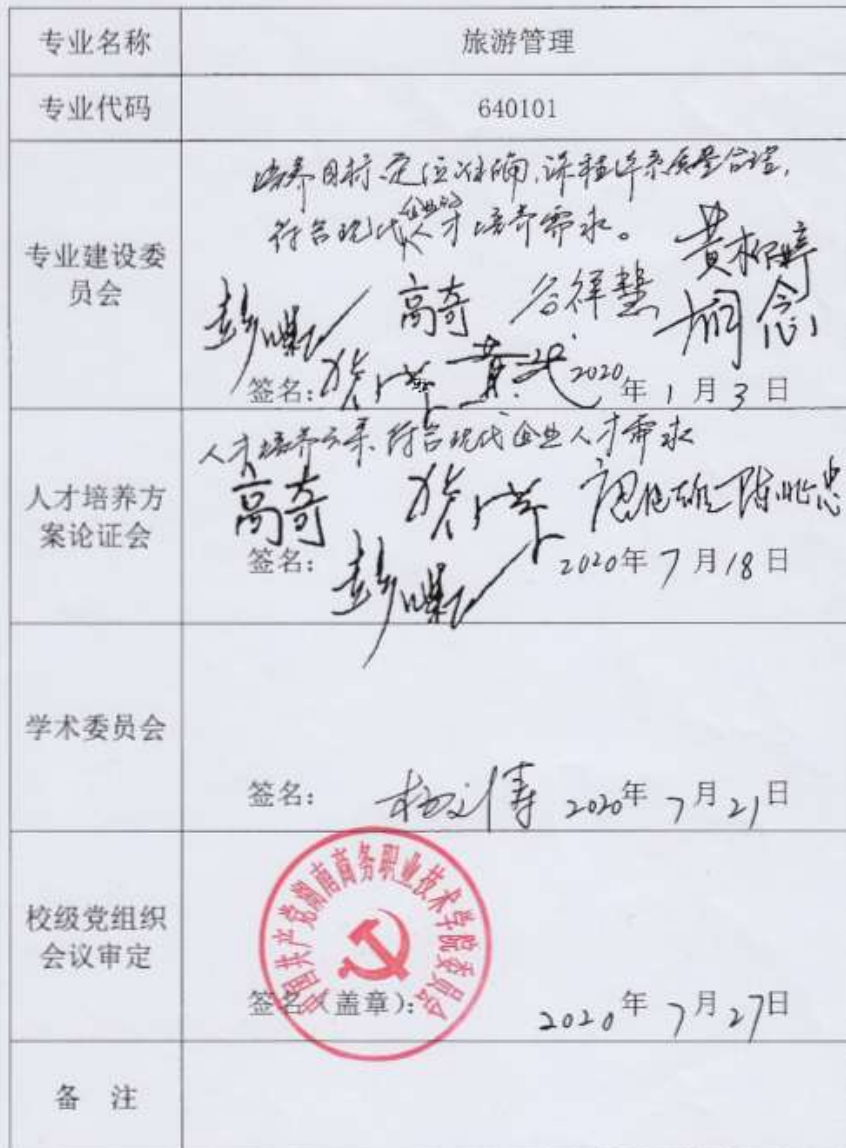 专业名称 旅游管理
专业代码 640101
专业建设委
员会
培养目标定位准确，课程体系质量合理，
符合现代企业的人才培养需求。
高奇 谷祥慧 黄柳婷
签名： 2020年1月3日
人才培养方
案论证会
人才培养方案符合现代企业人才需求
高奇
签名： 2020年7月18日
学术委员会
签名： 2020年7月21日
校级党组织
会议审定
中国共产党湖南商务职业技术学院委员会
签名（盖章）： 2020年7月27日
备 注